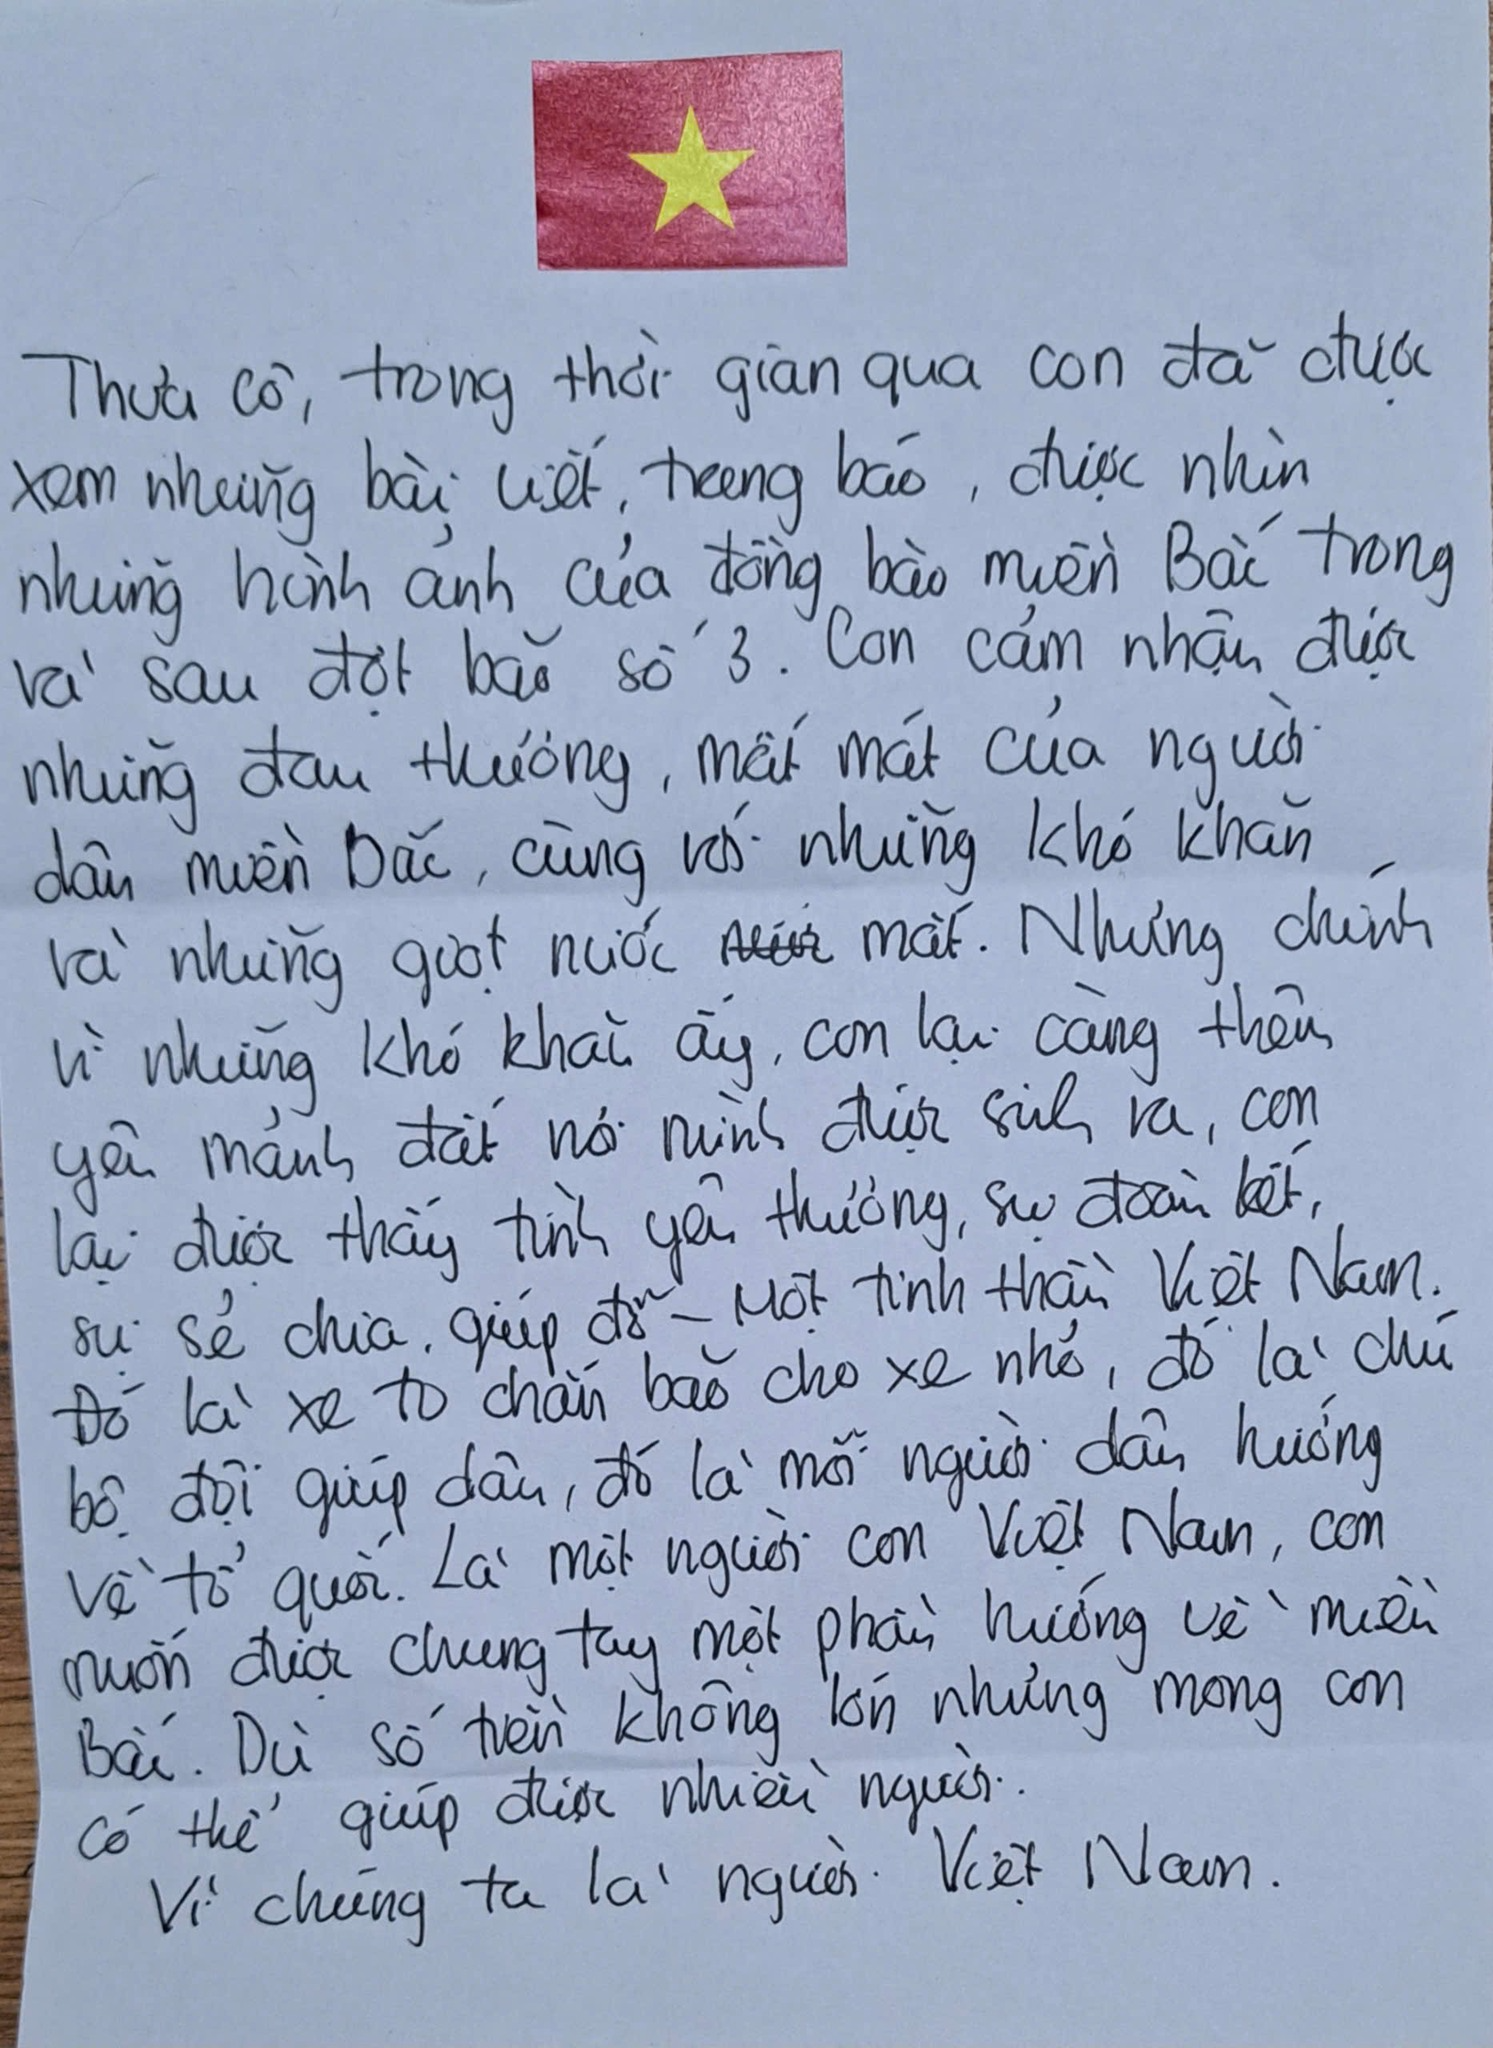 Thưa cô, trong thời gian qua con đã được
xem những bài viết, trang báo, được nhìn
những hình ảnh của đồng bào miền Bắc trong
và sau đợt bão số 3. Con cảm nhận được
những đau thương, mất mát của người
dân miền Bắc, cùng với những khó khăn
và những giọt nước mắt. Nhưng chính
vì những khó khăn ấy, con lại càng thêm
yêu mảnh đất nơi mình được sinh ra, con
lại được thấy tình yêu thương, sự đoàn kết,
sự sẻ chia, giúp đỡ – Một tinh thần Việt Nam.
Đó là xe to chắn bão cho xe nhỏ, đó là chú
bộ đội giúp dân, đó là mỗi người dân hướng
về tổ quốc. Là một người con Việt Nam, con
muốn được chung tay một phần hướng về miền
Bắc. Dù số tiền không lớn nhưng mong con
có thể giúp được nhiều người.
Vì chúng ta là người Việt Nam.